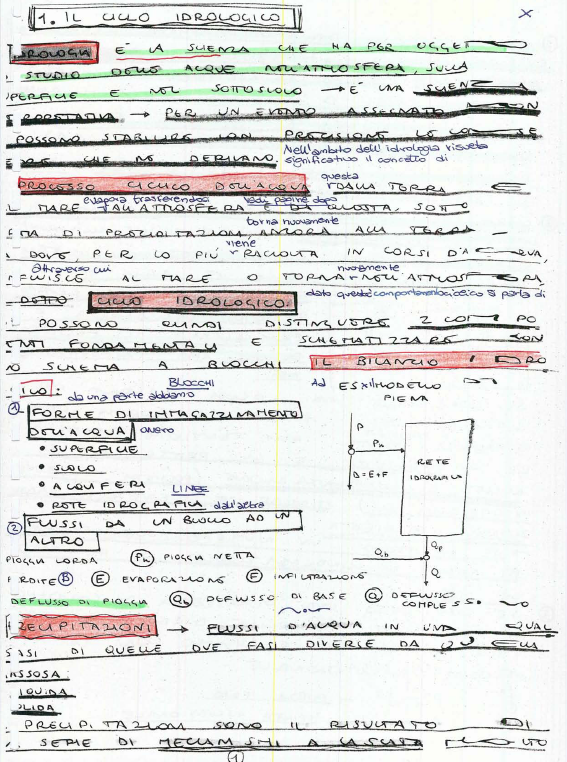 1. IL CICLO IDROLOGICO
IDROLOGIA È LA SCIENZA CHE HA PER OGGET
STUDIO DELLE ACQUE NELL'ATMOSFERA, SULLA
PERFICIE E NEL SOTTOSUOLO → È UNA SCIENZA
→ PER UN EVENTO ASSEGNATO NON
POSSONO STABILIRE CON PRECISIONE LE CON SE
CHE NE DERIVANO. Nell'ambito dell'idrologia risulta
significativo il concetto di
PROCESSO CICLICO DELL'ACQUA questa DALLA TERRA E
evapora trasferendosi vedi pagine dopo
L MARE ALL'ATMOSFERA E DA QUESTA, SOTTO
torna nuovamente
MA DI PRECIPITAZIONI, ANCORA ALLA TERRA
viene
DOVE, PER LO PIÙ RACCOLTA IN CORSI D'ACQUA,
attraverso cui nuovamente
FLUISCE AL MARE O TORNA NELL'ATMOSFERA,
DETTO CICLO IDROLOGICO. dato questo comportamento ciclico si parla di
POSSONO QUINDI DISTINGUERE 2 COMPO
NTI FONDAMENTALI E SCHEMATIZZARE CON
NO SCHEMA A BLOCCHI IL BILANCIO IDRO
BLOCCHI
da una parte abbiamo
① FORME DI IMMAGAZZINAMENTO
DELL'ACQUA ovvero
• SUPERFICIE
• SUOLO
• ACQUIFERI LINEE
• RETE IDROGRAFICA dall'altra
② FLUSSI DA UN BLOCCO AD UN
ALTRO
Ad ES: MODELLO DI
PIENA
P
Pn
D=E+F
RETE
IDROGRAFICA
Qp
Qb
Q
PIOGGIA LORDA Pn PIOGGIA NETTA
RDITE D E EVAPORAZIONE F INFILTRAZIONE
DEFLUSSO DI PIOGGIA Qb DEFLUSSO DI BASE Q DEFLUSSO
COMPLESSIVO
RECIPITAZIONI → FLUSSI D'ACQUA IN UNA QUAL
SIASI DI QUELLE DUE FASI DIVERSE DA QUELLA
ASSOSA:
IQUIDA
OLIDA
PRECIPITAZIONI SONO IL RISULTATO DI
SERIE DI MECCANISMI A CASCATA
(1)